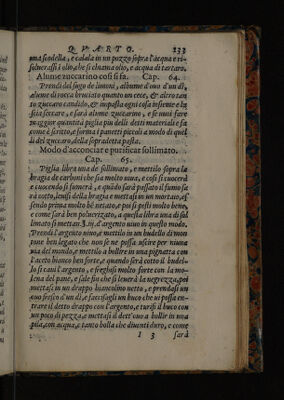 QVARTO. 233
una scodella, e calala in un pozzo sopra l'acqua e ri-
soluerassi i olio, che si chiama olio, e acqua di tartaro.
Alume zuccarino cosi si fa. Cap. 64.
Prendi del sugo de limoni, albume d'oua d'un dì,
alume di rocca bruciato quanto un cece, & altro tan-
to zuccaro candido, & impasta ogni cosa insieme e la
scia serrare, e sarà alume zuccarino, e se uuoi fare
maggior quantità piglia piu delli detti materiali e fa
come è scritto, e forma i panetti piccoli a modo di quel
li del zuccaro, della sopradetta pasta.
Modo d'acconciar e purificar sollimato.
Cap. 65.
Piglia libra una de sollimato, e mettilo sopra la
bragia de carboni che sia molto uiua, e cosi si cuocerà
e cuocendo si fumerà, e quādo sarà passato il fumo sa
rà cotto, leuasi della bragia e mettasi in un mortaio, es
sendo prima molto bē netato, e poi si pesti molto bene,
e come sarà ben poluerizato, a questa libra una di sol
limato si mettan. iij. d'argento uiuo in questo modo.
Prendi l'argento uiuo, e mettilo in un budello di mon
tone ben legato che non se ne possa uscire per niuna
uia del mondo, e mettilo a bollire in una pignatta con
l'aceto bianco ben forte, e quando serà cotto il budel-
lo si caui l'argento, e freghisi molto forte con la mo-
lena del pane, e sale fin che si leuerà la negrezza, poi
mettasi in un drappo biancolino netto, e prendasi un
ouo fresco d'un dì, e faccisegli un buco che ui possa en-
trare il detto drappo con l'argento, e turisi il buco con
un poco di pezza, e mettasi il dett'ouo a bollir in una
pila, con acqua, e tanto bolla che diuenti duro, e come
I 3 sarà